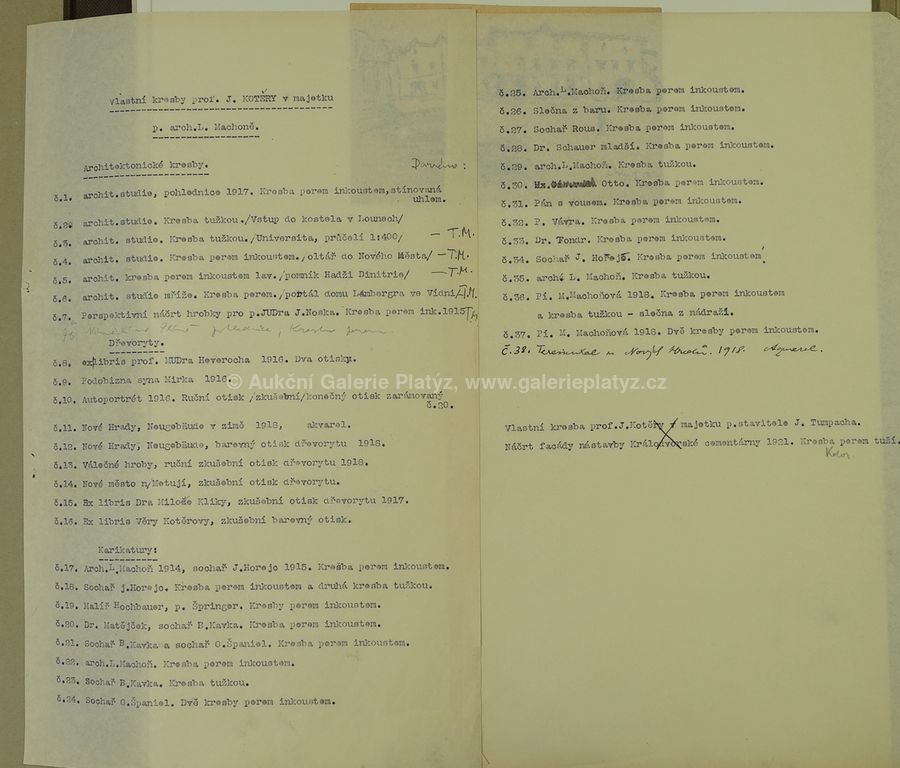 Vlastní kresby prof. J. KOTĚRY v majetku
p. arch.L. Machoně.
Architektonické kresby.
č.1. archit.studie, pohlednice 1917. Kresba perem inkoustem,stínovaná
uhlem.
č.2. archit.studie. Kresba tužkou./Vstup do kostela v Lounech/
č.3. archit. studie. Kresba tužkou./Universita, průčelí 1:400/ — T.M.
č.4. archit. studie. Kresba perem inkoustem./oltář do Nového Města/ — T.M.
č.5. archit. kresba perem inkoustem lav./pomník Hadži Dimitrie/ — T.M.
č.6. archit. studie mříže. Kresba perem./portál domu Lambergra ve Vídni/ T.M.
č.7. Perspektivní náčrt hrobky pro p.JUDra J.Noska. Kresba perem ink.1915 T.M.
Dřevoryty.
č.8. exlibris prof. MUDra Heverocha 1916. Dva otisky.
č.9. Podobizna syna Mirka 1916.
č.10. Autoportrét 1916. Ruční otisk /zkušební/konečný otisk zarámovaný
č.20.
č.11. Nové Hrady, Neugebäude v zimě 1918, akvarel.
č.12. Nové Hrady, Neugebäude, barevný otisk dřevorytu 1918.
č.13. Válečné hroby, ruční zkušební otisk dřevorytu 1918.
č.14. Nové město n/Metují, zkušební otisk dřevorytu.
č.15. Ex libris Dra Miloše Kliky, zkušební otisk dřevorytu 1917.
č.16. Ex libris Věry Kotěrovy, zkušební barevný otisk.
Karikatury:
č.17. Arch.L.Machoň 1914, sochař J.Horejc 1915. Kresba perem inkoustem.
č.18. Sochař j.Horejc. Kresba perem inkoustem a druhá kresba tužkou.
č.19. Malíř Hochbauer, p. Špringer. Kresby perem inkoustem.
č.20. Dr. Matějček, sochař B.Kavka. Kresba perem inkoustem.
č.21. Sochař B.Kavka a sochař O.Španiel. Kresba perem inkoustem.
č.22. arch.L.Machoň. Kresba perem inkoustem.
č.23. Sochař B.Kavka. Kresba tužkou.
č.24. Sochař O.Španiel. Dvě kresby perem inkoustem.
č.25. Arch.L.Machoň. Kresba perem inkoustem.
č.26. Slečna z baru. Kresba perem inkoustem.
č.27. Sochař Rous. Kresba perem inkoustem.
č.28. Dr. Schauer mladší. Kresba perem inkoustem.
č.29. arch.L.Machoň. Kresba tužkou.
č.30. Otto. Kresba perem inkoustem.
č.31. Pán s vousem. Kresba perem inkoustem.
č.32. P. Vávra. Kresba perem inkoustem.
č.33. Dr. Fondr. Kresba perem inkoustem.
č.34. Sochař J. Hořejš. Kresba perem inkoustem
č.35. arch. L. Machoň. Kresba tužkou.
č.36. Pí. M.Machoňová 1918. Kresba perem inkoustem
a kresba tužkou - slečna z nádraží.
č.37. Pí. M. Machoňová 1918. Dvě kresby perem inkoustem.
č.38. u Nových Hradů. 1918. Aquarel.
Vlastní kresba prof.J.Kotěry v majetku p.stavitele J. Tumpacha.
Náčrt facády nástavby Králodvorské cementárny 1921. Kresba perem tuší.
Kolor.
© Aukční Galerie Platýz, www.galerieplatyz.cz